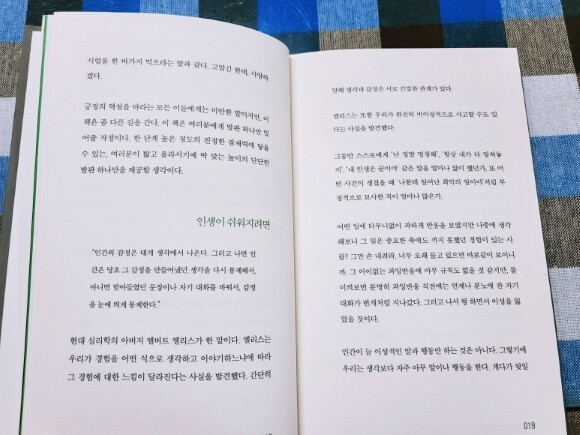 시럽을 한 바가지 먹으라는 말과 같다. 고맙긴 한데, 사양하
겠다.
긍정의 역설을 바라는 모든 이들에게는 미안한 말이지만, 이
책은 좀 다른 길을 간다. 이 책은 여러분에게 발판 하나만 밀
어줄 작정이다. 한 단계 높은 정도의 진정한 잠재력에 닿을
수 있는, 여러분이 밟고 올라서기에 딱 맞는 높이의 단단한
발판 하나만을 제공할 생각이다.
인생이 쉬워지려면
“인간의 감정은 대개 생각에서 나온다. 그러고 나면 인
간은 당초 그 감정을 만들어냈던 생각을 다시 통제해서,
아니면 받아들였던 문장이나 자기 대화를 바꿔서, 감정
을 눈에 띄게 통제한다.”
현대 심리학의 아버지 앨버트 엘리스가 한 말이다. 엘리스는
우리가 경험을 어떤 식으로 생각하고 이야기하느냐에 따라
그 경험에 대한 느낌이 달라진다는 사실을 발견했다. 간단히
말해 생각과 감정은 서로 긴밀한 관계가 있다.
엘리스는 또한 우리가 완전히 비이성적으로 사고할 수도 있
다는 사실을 발견했다.
그동안 스스로에게 ‘난 정말 멍청해’, ‘항상 내가 다 망쳐놓
지’, ‘내 인생은 끝이야’ 같은 말을 얼마나 많이 했던가. 또 어
떤 사건이 생겼을 때 ‘나한테 일어난 최악의 일이야’처럼 부
정적으로 묘사한 적이 얼마나 많은가.
어떤 일에 터무니없이 과하게 반응을 보였지만 나중에 생각
해보니 그 일은 중요한 축에도 끼지 못했던 경험이 있는 사
람? 그만 손 내려라. 너무 오래 들고 있으면 바보같이 보이니
까. 그 어이없는 과잉반응에 아무 규칙도 없을 것 같지만, 돌
이켜보면 분명히 과잉반응 직전에는 언제나 분노에 찬 자기
대화가 번개처럼 지나갔다. 그러고 나서 펑 하면서 이성을 잃
었을 것이다.
인간이 늘 이성적인 말과 행동만 하는 것은 아니다. 그렇기에
우리는 생각보다 자주 아무 말이나 행동을 한다. 게다가 뒷일
019